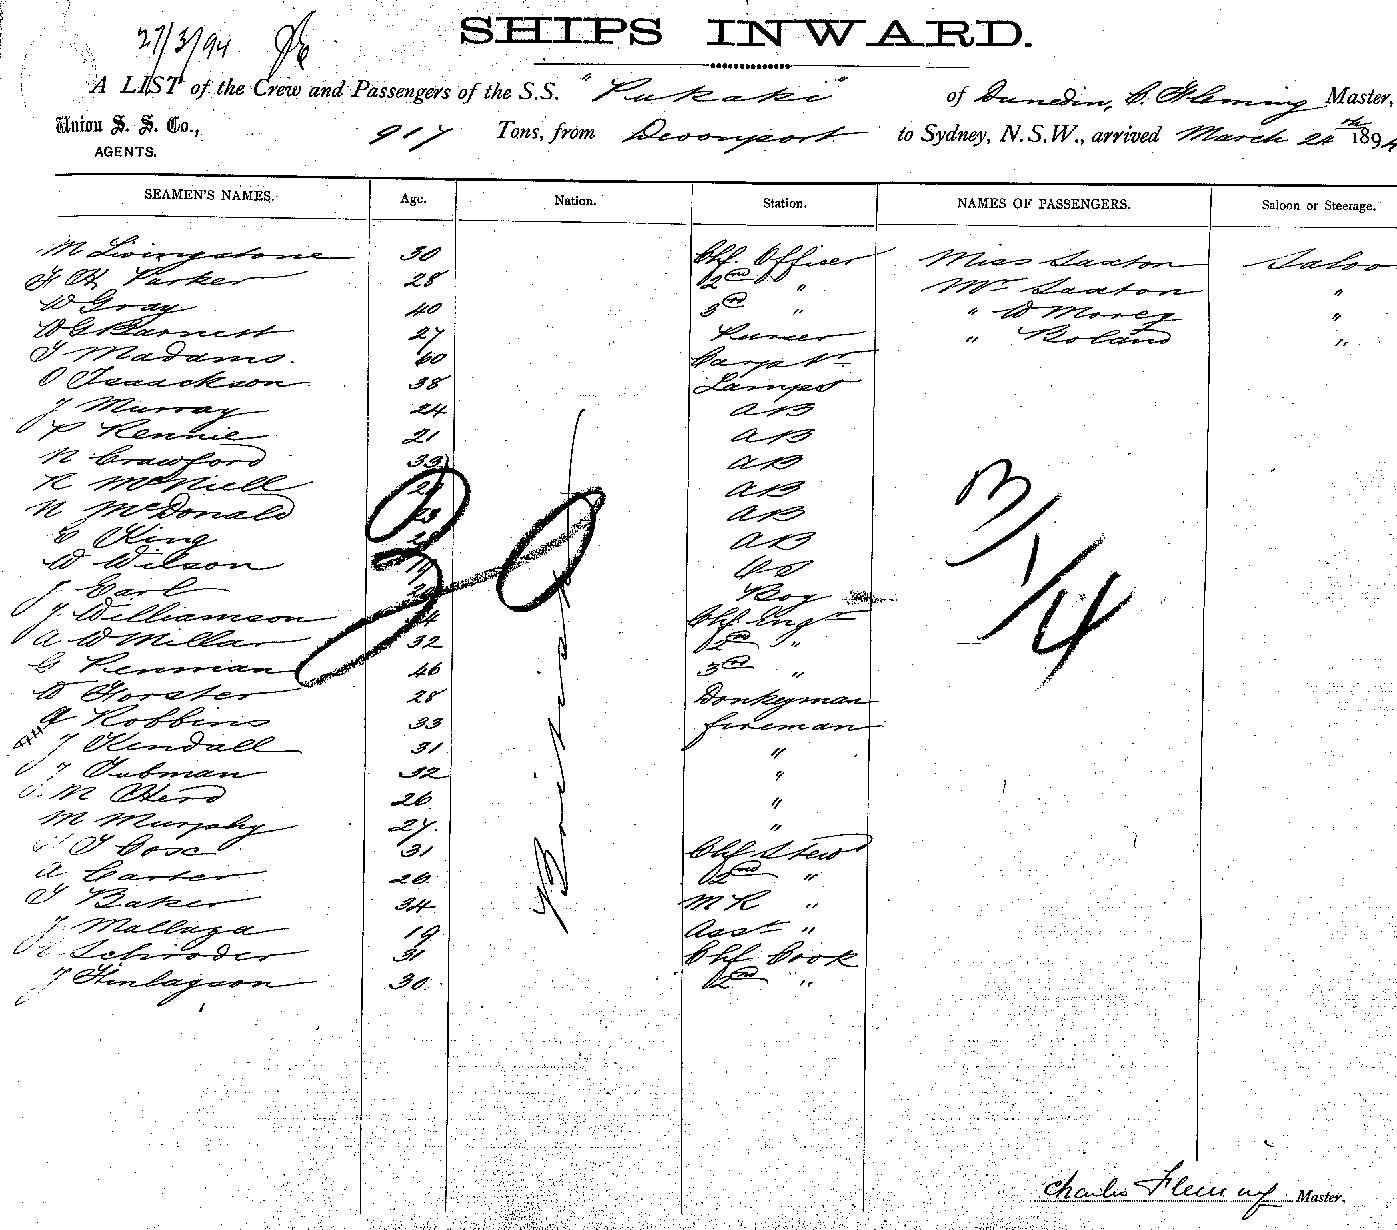 27/3/94
SHIPS INWARD.
A LIST of the Crew and Passengers of the S.S. "Pukaki" of Dunedin, C. Fleming Master,
Union S. S. Co., AGENTS. 917 Tons, from Devonport to Sydney, N.S.W., arrived March 24th 1894
SEAMEN'S NAMES. Age. Nation. Station. NAMES OF PASSENGERS. Saloon or Steerage.
M Livingstone 30 Chf. Officer Miss Saxton Saloo
F H Parker 28 2nd " Mr Saxton "
W Gray 40 3rd " " W Morey "
W G Barnett 27 Purser " Boland "
T Madams. 60 Carptr
O Isaackson 38 Lamps
J Murray 24 AB
P Rennie 21 AB
N Crawford 33 AB
R McNiell AB
N McDonald AB
King AB
W Wilson OS
J Earl Boy
J Williamson Chf Engr
A W Millar 32 2nd "
G Penman 46 3rd "
W Forster 28 Donkeyman
A Robbins 33 fireman
J Kendall 31 "
J Tubman 32 "
M Herd 26 "
M Murphy 27. "
T Cosc 31 Chf Stewd
A Carter 26 2nd "
T Baker 34 M R "
J Mallaga 19 Asst "
R Schroder 31 Chf Cook
J Finlayson 30 2nd "
British
30
3/1/4
Charles Fleming Master.